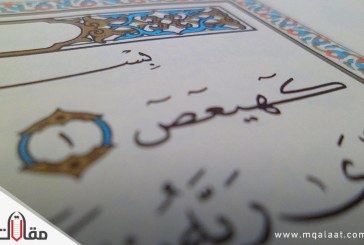 بِسْ
كٓهيعٓصٓ ١
رَبِّ
مقالات
www.mqalaat.com